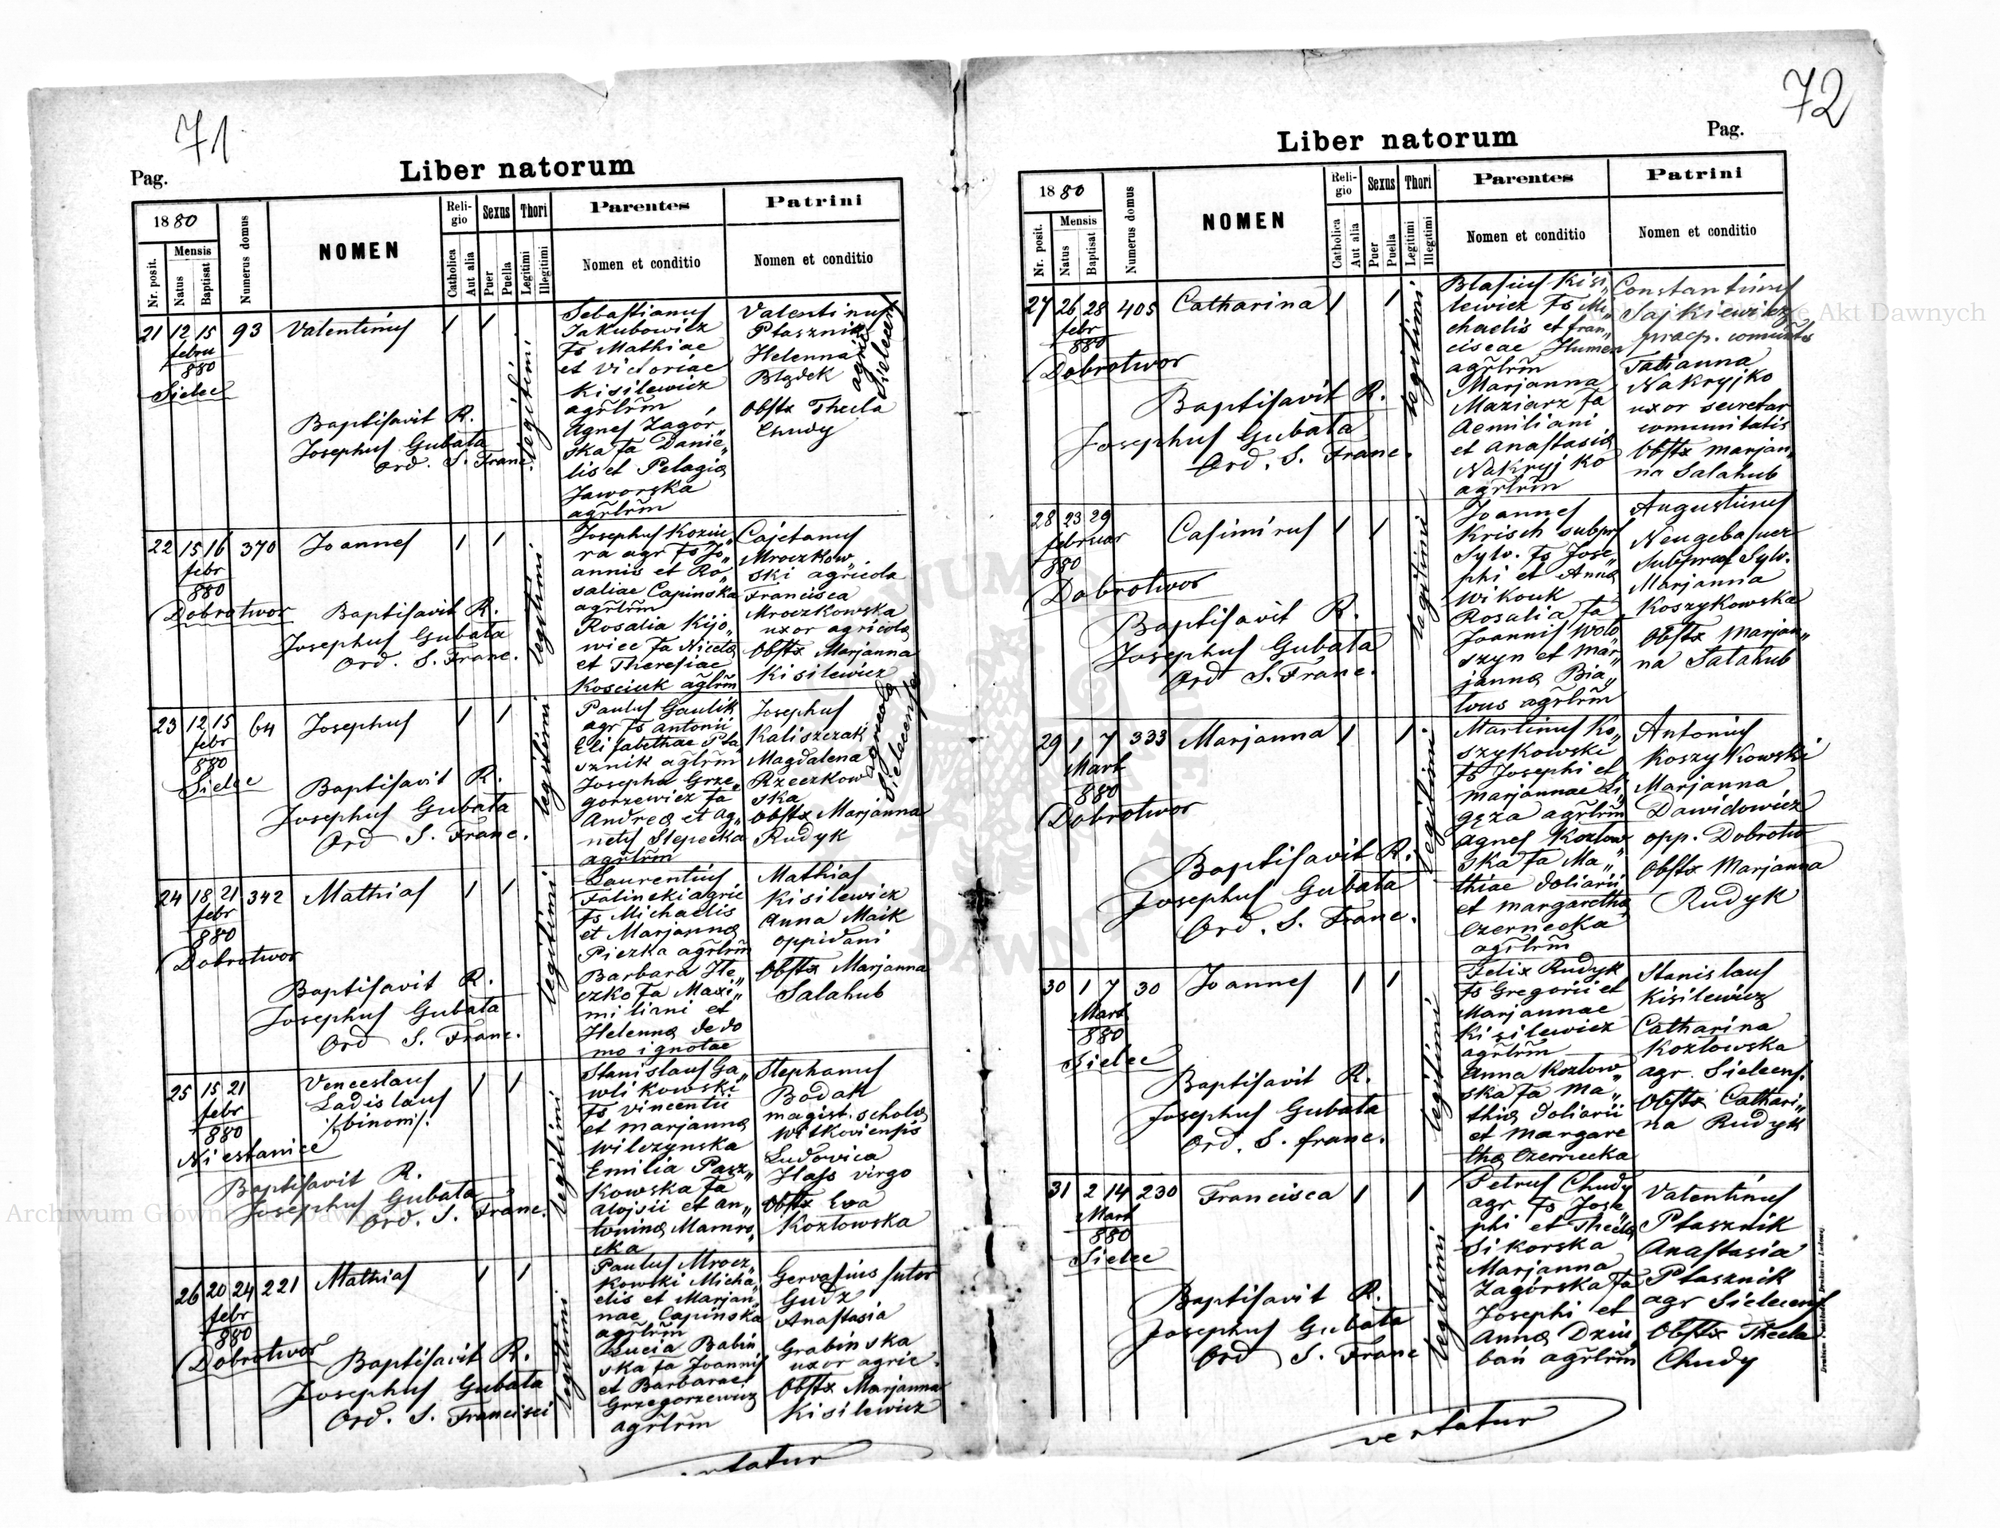 71
Pag.
Liber natorum
1880
Mensis
Nr. posit.
Natus
Baptisat
Numerus domus
NOMEN
Religio
Catholica
Aut alia
Sexus
Puer
Puella
Thori
Legitimi
Illegitimi
Parentes
Nomen et conditio
Patrini
Nomen et conditio
21 12 15 93 Valentinus 1 1
febru
880
Sielec
Baptisavit R.
Josephus Gubata
Ord. S. Franc.
legitimi
Sebastianus
Jakubowicz
fs Mathiae
et Victoriae
Kisilewicz
agrlrm
Agnes Zagór„
ska fa Danie„
lis et Pelagia
Jaworska
agrlrm
Valentinus
Ptasznik
Helenna
Blądek
agric
Sielecens
Obstx Thecla
Chudy
22 15 16 370 Joannes 1 1
febr
880
Dobrotwor
Baptisavit R.
Josephus Gubata
Ord. S. Franc.
legitimi
Josephus Koziu„
ra agr fs Jo„
annis et Ro„
saliae Capinska
agrlrm
Rosalia Kijo„
wiec fa Niceta
et Theresiae
Kosciuk agrlrm
Cajetanus
Mroczkow„
ski agricola
Francisca
Mroczkowska
uxor agricola
Obstx Marjanna
Kisilewicz
23 12 15 64 Josephus 1 1
febr
880
Sielec
Baptisavit R.
Josephus Gubata
Ord S. Franc.
legitimi
Paulus Gaulik
agr fs Antonii
Elisabethae Pta
sznik agrlrm
Josepha Grze„
gorzewicz fa
Andrea et Ag„
nety Slepecka
agrlrm
Josephus
Kaliszczak
Magdalena
Rzeczkow
ska
agricola
Sielecenses
Obstx Marjanna
Rudyk
24 18 21 342 Mathias 1 1
febr
880
Dobrotwor
Baptisavit R.
Josephus Gubata
Ord S. Franc.
legitimi
Laurentius
Falinski agric
fs Michaelis
et Marjanna
Piezka agrlrm
Barbara He„
czko fa Maxi„
miliani et
Helenna de do
mo ignotae
Mathias
Kisilewicz
Anna Maik
oppidani
Obstx Marjanna
Salahub
25 15 21 Venceslaus 1 1
febr
880
Niestanice
Ladislaus
/:binom:/
Baptisavit R.
Josephus Gubata
Ord. S. Franc.
legitimi
Stanislaus Ga„
wlikowski
fs Vincentii
et marjanna
Wilczynska
Emilia Pasz„
Kowska fa
Alojsii et An„
tonina Mamro„
ska
Stephanus
Bodak
magist. schola
Witkoviensis
Ludovica
Hass virgo
Obstx Eva
Kozłowska
26 20 24 221 Mathias 1 1
febr
880
Dobrotwor
Baptisavit R.
Josephus Gubata
Ord. S. Francisci
legitimi
Paulus Mrocz„
Kowski Micha„
elis et Marjan„
nae Capinska
agrlrm
Lucia Babin
ska fa Joannis
et Barbarae
Grzegorzewicz
agrlrm
Gervasius sutor
Gudz
Anastasia
Grabinska
uxor agric.
Obstx Marjanna
Kisilewicz
vertatur
72
Liber natorum
Pag.
1880
Mensis
Nr. posit.
Natus
Baptisat
Numerus domus
NOMEN
Religio
Catholica
Aut alia
Sexus
Puer
Puella
Thori
Legitimi
Illegitimi
Parentes
Nomen et conditio
Patrini
Nomen et conditio
27 26 28 405 Catharina 1 1
febr
880
Dobrotwor
Baptisavit R.
Josephus Gubata
Ord. S. Franc.
legitimi
Blasius Kisi„
lewicz fs Mi„
chaelis et fran„
ciscae Humen
agrlrm
Marjanna
Maziarz fa
Aemiliani
et Anastasia
Nakryjko
agrlrm
Constantinus
Sajkiewicz
praep. comunitis
Tatianna
Nakryjko
uxor secretar
comunitatis
Obstx marjan„
na Salahub
28 23 29 Casimirus 1 1
februar
880
Dobrotwor
Baptisavit R.
Josephus Gubata
Ord S. Franc.
legitimi
Joannes
Krisch subprf
Sylv. fs Jose„
phi et Anna
Wikouk
Rosalia fa
Joannis Woło„
szyn et Mar„
janna Bia„
tous agrlrm
Augustinus
Neugebauer
Subpraef Sylv.
Marjanna
Koszykowska
Obstx Marjan„
na Salahub
29 1 7 333 Marjanna 1 1
Mart
880
Dobrotwor
Baptisavit R.
Josephus Gubata
Ord. S. Franc.
legitimi
Martinus Ko„
szykowski
fs Josephi et
marjannae Li„
gęza agrlrm
Agnes Kozłow„
ska fa Ma„
thiae doliarii
et margaretha
Czernecka
agrlrm
Antonius
Koszykowski
Marjanna
Dawidowicz
opp. Dobrotw
Obstx Marjanna
Rudyk
30 1 7 30 Joannes 1 1
Mart
880
Sielec
Baptisavit R.
Josephus Gubata
Ord. S. franc.
legitimi
Felix Rudyk
fs Gregorii et
Marjannae
Kisilewicz
agrlrm
Anna Kozłow„
ska fa Ma„
thia doliarii
et Margare
tha Czernecka
Stanislaus
Kisilewicz
Catharina
Kozłowska
agr. Sielecens.
Obstx Cathari„
na Rudyk
31 2 14 230 Francisca 1 1
Mart
880
Sielec
Baptisavit R.
Josephus Gubata
Ord S. Franc
legitimi
Petrus Chudy
agr fs Jose„
phi et Thecla
Sikorska
Marjanna
Zagórska fa
Josephi et
Anna Dziu
bań agrlrm
Valentinus
Ptasznik
Anastasia
Ptasznik
agr Sielecens
Obstx Thecla
Chudy
vertatur
Archiwum Główne Akt Dawnych